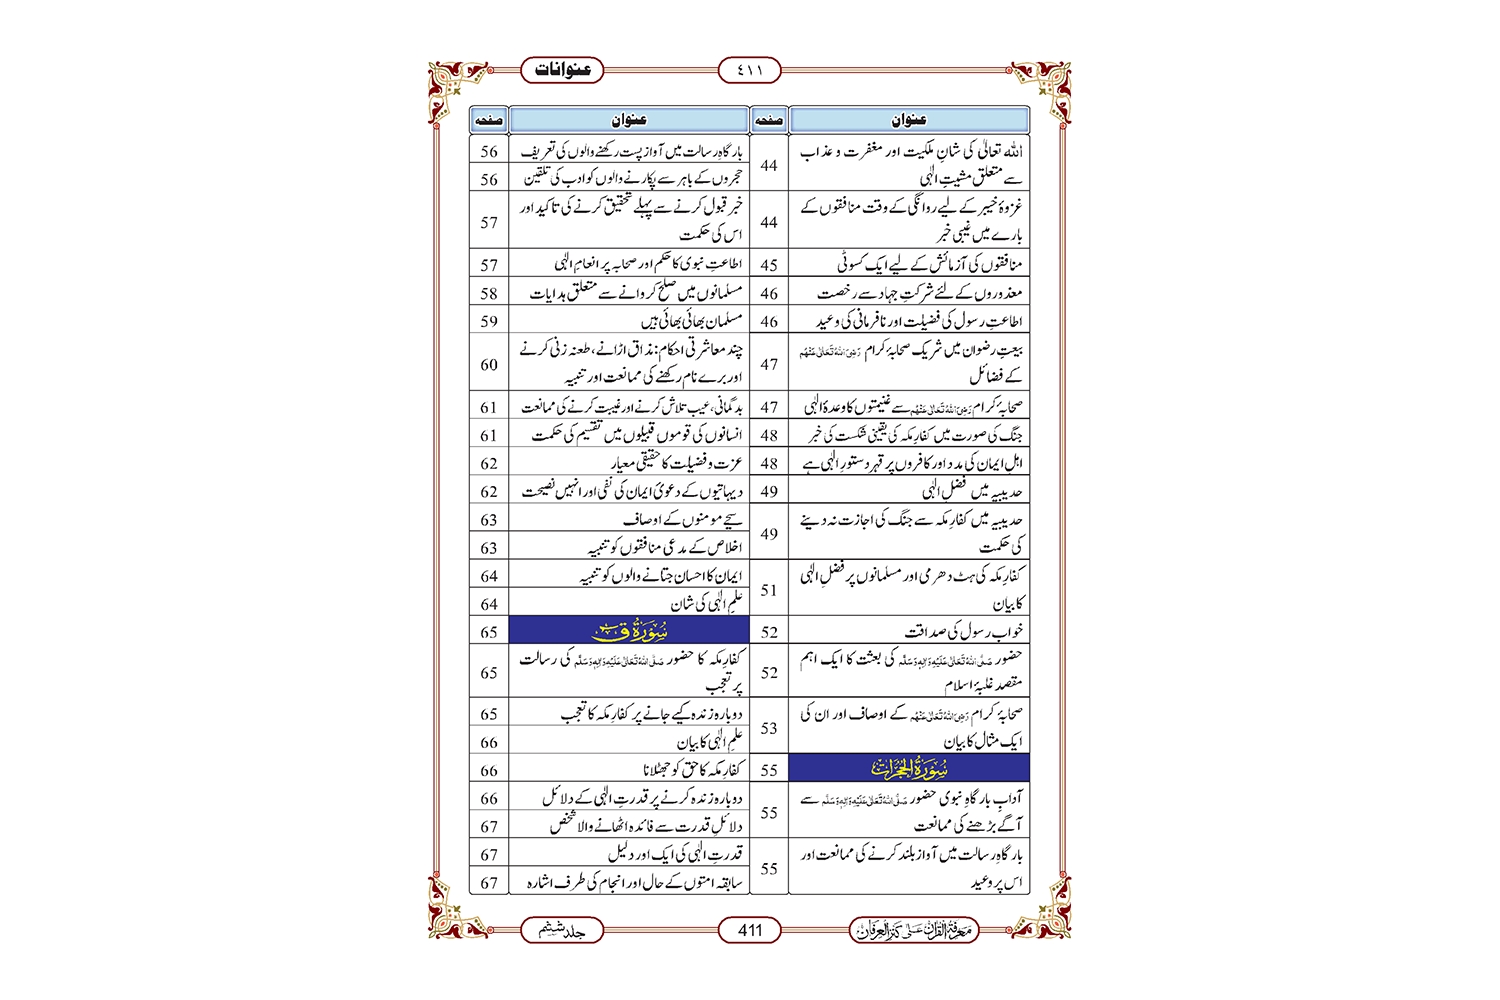 عنوانات
٤١١
عنوان صفحہ
اللہ تعالیٰ کی شانِ ملکیت اور مغفرت و عذاب
سے متعلق مشیتِ الٰہی 44
غزوۂ خیبر کے لیے روانگی کے وقت منافقوں کے
بارے میں غیبی خبر 44
منافقوں کی آزمائش کے لیے ایک کسوٹی 45
معذوروں کے لئے شرکتِ جہاد سے رخصت 46
اطاعتِ رسول کی فضیلت اور نافرمانی کی وعید 46
بیعتِ رضوان میں شریک صحابۂ کرام رَضِیَ اللہُ تَعَالٰی عَنْہُم
کے فضائل 47
صحابۂ کرام رَضِیَ اللہُ تَعَالٰی عَنْہُم سے غنیمتوں کا وعدۂ الٰہی 47
جنگ کی صورت میں کفارِ مکہ کی یقینی شکست کی خبر 48
اہلِ ایمان کی مدد اور کافروں پر قہر دستورِ الٰہی ہے 48
حدیبیہ میں فضلِ الٰہی 49
حدیبیہ میں کفارِ مکہ سے جنگ کی اجازت نہ دینے
کی حکمت 49
کفارِ مکہ کی ہٹ دھرمی اور مسلمانوں پر فضلِ الٰہی
کا بیان 51
خوابِ رسول کی صداقت 52
حضور صَلَّی اللہُ تَعَالٰی عَلَیْہِ وَاٰلِہٖ وَسَلَّم کی بعثت کا ایک اہم
مقصد غلبۂ اسلام 52
صحابۂ کرام رَضِیَ اللہُ تَعَالٰی عَنْہُم کے اوصاف اور ان کی
ایک مثال کا بیان 53
سُوْرَۃُ الْحُجُرٰت 55
آدابِ بارگاہِ نبوی حضور صَلَّی اللہُ تَعَالٰی عَلَیْہِ وَاٰلِہٖ وَسَلَّم سے
آگے بڑھنے کی ممانعت 55
بارگاہِ رسالت میں آواز بلند کرنے کی ممانعت اور
اس پر وعید 55
عنوان صفحہ
بارگاہِ رسالت میں آواز پست رکھنے والوں کی تعریف 56
حجروں کے باہر سے پکارنے والوں کو ادب کی تلقین 56
خبر قبول کرنے سے پہلے تحقیق کرنے کی تاکید اور
اس کی حکمت 57
اطاعتِ نبوی کا حکم اور صحابہ پر انعامِ الٰہی 57
مسلمانوں میں صلح کروانے سے متعلق ہدایات 58
مسلمان بھائی بھائی ہیں 59
چند معاشرتی احکام: مذاق اڑانے، طعنہ زنی کرنے
اور برے نام رکھنے کی ممانعت اور تنبیہ 60
بدگمانی، عیب تلاش کرنے اور غیبت کرنے کی ممانعت 61
انسانوں کی قوموں قبیلوں میں تقسیم کی حکمت 61
عزت و فضیلت کا حقیقی معیار 62
دیہاتیوں کے دعویٰ ایمان کی نفی اور انہیں نصیحت 62
سچے مومنوں کے اوصاف 63
اخلاص کے مدعی منافقوں کو تنبیہ 63
ایمان کا احسان جتانے والوں کو تنبیہ 64
علمِ الٰہی کی شان 64
سُوْرَۃُ قٓ 65
کفارِ مکہ کا حضور صَلَّی اللہُ تَعَالٰی عَلَیْہِ وَاٰلِہٖ وَسَلَّم کی رسالت
پر تعجب 65
دوبارہ زندہ کیے جانے پر کفارِ مکہ کا تعجب 65
علمِ الٰہی کا بیان 66
کفارِ مکہ کا حق کو جھٹلانا 66
دوبارہ زندہ کرنے پر قدرتِ الٰہی کے دلائل 66
دلائلِ قدرت سے فائدہ اٹھانے والا شخص 67
قدرتِ الٰہی کی ایک اور دلیل 67
سابقہ امتوں کے حال اور انجام کی طرف اشارہ 67
معرفۃ القرآن علٰی کنز العرفان
411
جلد ششم